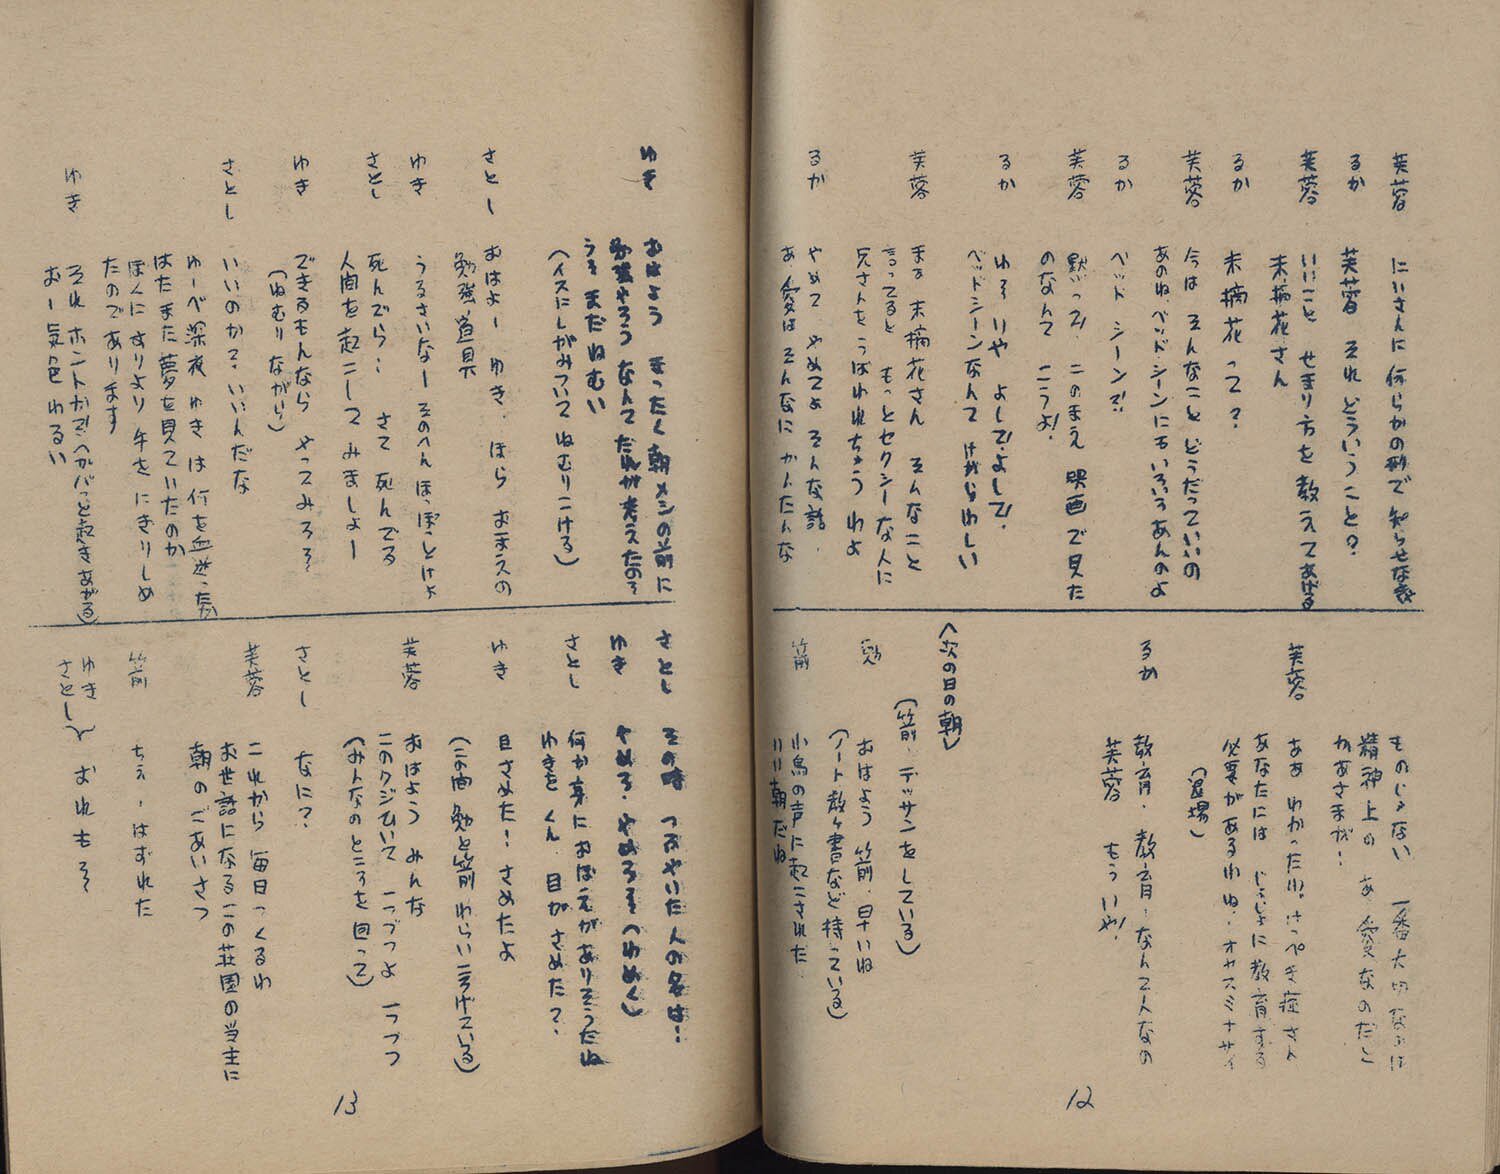 芙蓉　にいさんに何らかの形で知らせなきゃ
るか　芙蓉　それどういうこと？
芙蓉　いいこと　せまり方を教えてあげる
末摘花さん
るか　末摘花って？
芙蓉　今は　そんなこと　どうだっていいの
あのね、ベッド・シーンにもいろいろあんのよ
るか　ベッド　シーンで!!
芙蓉　黙って、このまえ　映画で見た
のなんて　こうよ！
るか　いや　よして！よして！
ベッドシーンなんて　けがらわしい
芙蓉　まあ　末摘花さん　そんなこと
言ってると　もっとセクシーな人に
兄さんをうばわれちゃう　わよ
るか　やめて　やめてよ　そんな話、
あ、愛はそんなに　かんたんな
ものじゃない　一番大切なのは
精神上の　あ、愛なのだと
かあさまが！
芙蓉　ああ　わかったわ、けっぺき症さん
あなたには　じょじょに教育する
必要があるわね・オヤスミナサイ
（退場）
るか　教育・教育・なんて人なの
芙蓉　もう　いや！
〈次の日の朝〉
（箭、デッサンをしている）
勉　おはよう　箭、早いね
（ノート教か書など持っている）
箭　小鳥の声に起こされた
いい朝だね
12
ゆき　おはよう　まったく朝メシの前に
勉強やろうなんてだれが考えたのら
うーまだねむい
（イスにしがみついてねむりこける）
さとし　おはよー　ゆき、ほら　おまえの
勉強道具
ゆき　うるさいなー　そのへんほっぽっとけよ
さとし　死んでら、さて　死んでる
人間を起こしてみましょー
ゆき　できるもんなら　やってみろ〜
（ねむりながら）
さとし　いいのかて、いいんだな
ゆーべ深夜　ゆき　は　何を血迷ったか
はたまた夢を見ていたのか
ぼくにすりより　手をにぎりしめ
たのであります
ゆき　それ　ホントか!?（ガバっと起きあがる）
おー気色わるい
さとし　その時　つぶやいた人の名は！
ゆき　やめろ・やめろ〜（わめく）
さとし　何か身におぼえがありそうだね
ゆきをくん、目がさめた？
ゆき　目さめた！さめたよ
（この間　勉と箭　わらいころげている）
芙蓉　おはよう　みんな
このクジひいて　一つづつよ　一つづつ
（みんなのところを回って）
さとし　なに？
芙蓉　これから　毎日つくるわ
お世話になるこの荘園の当主に
朝のごあいさつ
箭　ちえ・はずれた
ゆき　さとし〉　おれも〜
13